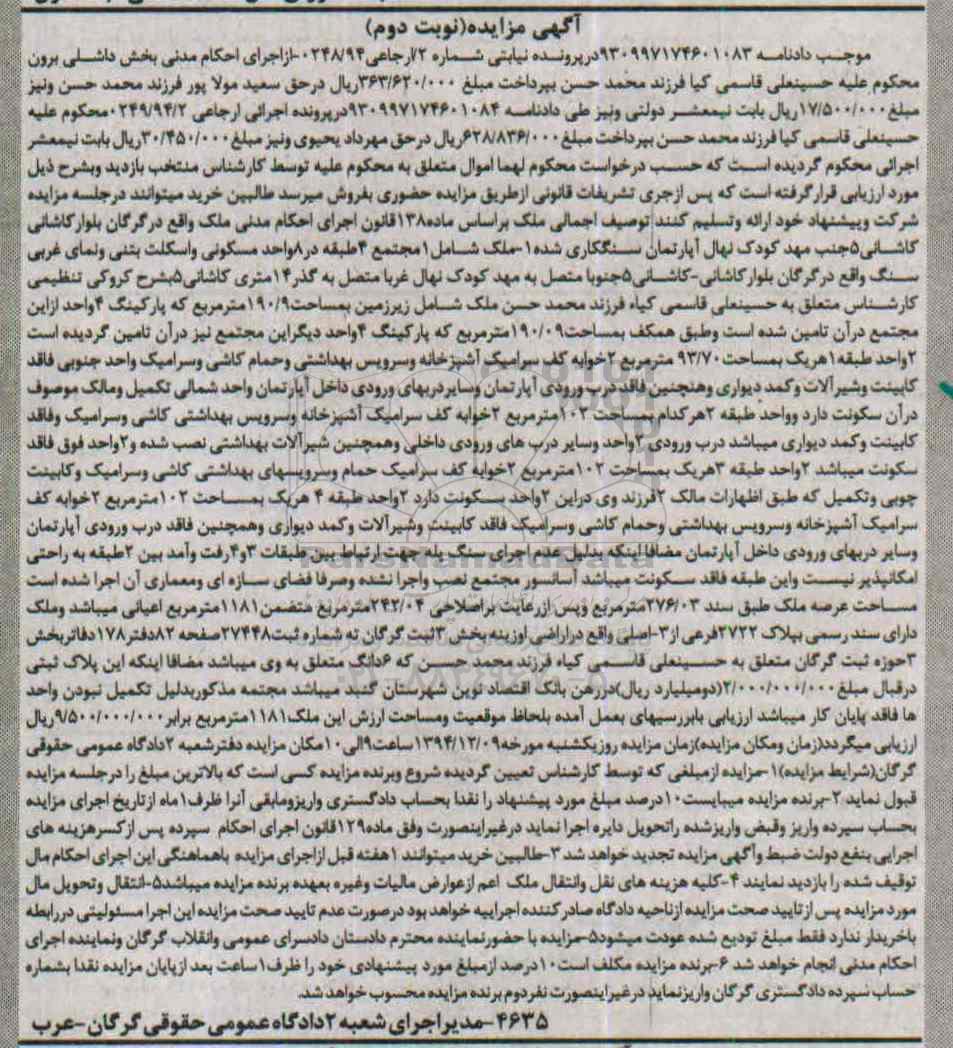 آگهی مزایده(نوبت دوم)
موجب دادنامه ۹۳۰۹۹۷۱۷۴۶۰۱۰۸۳درپرونده نیابتی شماره ۲/ارجاعی۰۲۴۸/۹۴-ازاجرای احکام مدنی بخش داشلی برون
محکوم علیه حسینعلی قاسمی کیا فرزند محمد حسن بپرداخت مبلغ ۳۶۳/۶۲۰/۰۰۰ریال درحق سعید مولا پور فرزند محمد حسن ونیز
مبلغ۱۷/۵۰۰/۰۰۰ریال بابت نیمعشر دولتی ونیز طی دادنامه ۹۳۰۹۹۷۱۷۴۶۰۱۰۸۴درپرونده اجرائی ارجاعی ۰۲۴۹/۹۴/۲محکوم علیه
حسینعلی قاسمی کیا فرزند محمد حسن بپرداخت مبلغ۶۲۸/۸۳۶/۰۰۰ریال درحق مهرداد یحیوی ونیز مبلغ۳۰/۴۵۰/۰۰۰ریال بابت نیمعشر
اجرائی محکوم گردیده است که حسب درخواست محکوم لهما اموال متعلق به محکوم علیه توسط کارشناس منتخب بازدید وبشرح ذیل
مورد ارزیابی قرارگرفته است که پس ازجری تشریفات قانونی ازطریق مزایده حضوری بفروش میرسد طالبین خرید میتوانند درجلسه مزایده
شرکت وپیشنهاد خود ارائه وتسلیم کنند توصیف اجمالی ملک براساس ماده۱۳۸قانون اجرای احکام مدنی ملک واقع درگرگان بلوارکاشانی
کاشانی۵جنب مهد کودک نهال آپارتمان سنگکاری شده۱-ملک شامل۱مجتمع ۴طبقه در۸واحد مسکونی واسکلت بتنی ونمای غربی
سنگ واقع درگرگان بلوارکاشانی-کاشانی۵جنوبا متصل به مهد کودک نهال غربا متصل به گذر۱۴متری کاشانی۵بشرح کروکی تنظیمی
کارشناس متعلق به حسینعلی قاسمی کیاه فرزند محمد حسن ملک شامل زیرزمین بمساحت۱۹۰/۹مترمربع که پارکینگ ۴واحد ازاین
مجتمع درآن تامین شده است وطبق همکف بمساحت۱۹۰/۰۹مترمربع که پارکینگ ۴واحد دیگراین مجتمع نیز درآن تامین گردیده است
۲واحد طبقه۱هریک بمساحت ۹۳/۷۰ مترمربع ۲خوابه کف سرامیک آشپزخانه وسرویس بهداشتی وحمام کاشی وسرامیک واحد جنوبی فاقد
کابینت وشیرآلات وکمد دیواری وهنچنین فاقد درب ورودی آپارتمان وسایردربهای ورودی داخل آپارتمان واحد شمالی تکمیل ومالک موصوف
درآن سکونت دارد وواحد طبقه ۲هرکدام بمساحت ۱۰۲مترمربع ۲خوابه کف سرامیک آشپزخانه وسرویس بهداشتی کاشی وسرامیک وفاقد
کابینت وکمد دیواری میباشد درب ورودی۲واحد وسایر درب های ورودی داخلی وهمچنین شیرآلات بهداشتی نصب شده و۲واحد فوق فاقد
سکونت میباشد ۲واحد طبقه ۳هریک بمساحت ۱۰۲مترمربع ۲خوابه کف سرامیک حمام وسرویسهای بهداشتی کاشی وسرامیک وکابینت
چوبی وتکمیل که طبق اظهارات مالک ۲فرزند وی دراین ۲واحد سکونت دارد ۲واحد طبقه ۴ هریک بمساحت ۱۰۲مترمربع ۲خوابه کف
سرامیک آشپزخانه وسرویس بهداشتی وحمام کاشی وسرامیک فاقد کابینت وشیرآلات وکمد دیواری وهمچنین فاقد درب ورودی آپارتمان
وسایر دربهای ورودی داخل آپارتمان مضافا اینکه بدلیل عدم اجرای سنگ پله جهت ارتباط بین طبقات ۳و۴رفت وآمد بین ۲طبقه به راحتی
امکانپذیر نیست واین طبقه فاقد سکونت میباشد آسانسور مجتمع نصب واجرا نشده وصرفا فضای سازه ای ومعماری آن اجرا شده است
مساحت عرصه ملک طبق سند ۲۷۶/۰۳مترمربع وپس ازرعایت براصلاحی ۲۴۲/۰۴مترمربع متضمن۱۱۸۱مترمربع اعیانی میباشد وملک
دارای سند رسمی بپلاک ۲۷۲۲فرعی از۳-اصلی واقع دراراضی اوزینه بخش ۳ثبت گرگان به شماره ثبت۲۷۴۴۸صفحه ۸۲دفتر۱۷۸دفاتربخش
۳حوزه ثبت گرگان متعلق به حسینعلی قاسمی کیاه فرزند محمد حسن که ۶دانگ متعلق به وی میباشد مضافا اینکه این پلاک ثبتی
درقبال مبلغ ۲/۰۰۰/۰۰۰/۰۰۰(دومیلیارد ریال)دررهن بانک اقتصاد نوین شهرستان گنبد میباشد مجتمه مذکوربدلیل تکمیل نبودن واحد
ها فاقد پایان کار میباشد ارزیابی بابررسیهای بعمل آمده بلحاظ موقعیت ومساحت ارزش این ملک۱۱۸۱مترمربع برابر۹/۵۰۰/۰۰۰/۰۰۰ریال
ارزیابی میگردد(زمان ومکان مزایده)زمان مزایده روزیکشنبه مورخه۱۳۹۴/۱۲/۰۹ساعت۹الی۱۰مکان مزایده دفترشعبه ۲دادگاه عمومی حقوقی
گرگان(شرایط مزایده)۱-مزایده ازمبلغی که توسط کارشناس تعیین گردیده شروع وبرنده مزایده کسی است که بالاترین مبلغ را درجلسه مزایده
قبول نماید ۲-برنده مزایده میبایست۱۰درصد مبلغ مورد پیشنهاد را نقدا بحساب دادگستری واریزومابقی آنرا ظرف۱ماه ازتاریخ اجرای مزایده
بحساب سپرده واریز وقبض واریزشده راتحویل دایره اجرا نماید درغیراینصورت وفق ماده۱۲۹قانون اجرای احکام سپرده پس ازکسرهزینه های
اجرایی بنفع دولت ضبط وآگهی مزایده تجدید خواهد شد ۳-طالبین خرید میتوانند ۱هفته قبل ازاجرای مزایده باهماهنگی این اجرای احکام مال
توقیف شده را بازدید نمایند ۴-کلیه هزینه های نقل وانتقال ملک اعم ازعوارض مالیات وغیره بعهده برنده مزایده میباشد۵-انتقال وتحویل مال
مورد مزایده پس ازتایید صحت مزایده ازناحیه دادگاه صادرکننده اجراییه خواهد بود درصورت عدم تایید صحت مزایده این اجرا مسئولیتی دررابطه
باخریدار ندارد فقط مبلغ تودیع شده عودت میشود۵-مزایده با حضورنماینده محترم دادستان دادسرای عمومی وانقلاب گرگان ونماینده اجرای
احکام مدنی انجام خواهد شد ۶-برنده مزایده مکلف است۱۰درصد ازمبلغ مورد پیشنهادی خود را ظرف۱ساعت بعد ازپایان مزایده نقدا بشماره
حساب سپرده دادگستری گرگان واریزنماید درغیراینصورت نفردوم برنده مزایده محسوب خواهد شد.
۴۶۳۵-مدیراجرای شعبه ۲دادگاه عمومی حقوقی گرگان-عرب